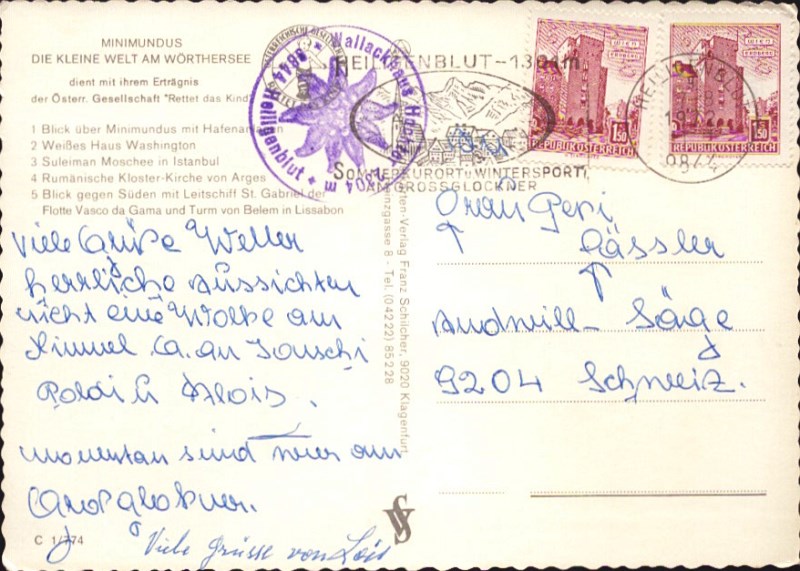 MINIMUNDUS
DIE KLEINE WELT AM WÖRTHERSEE
dient mit ihrem Erträgnis
der Österr. Gesellschaft "Rettet das Kind"
1 Blick über Minimundus mit Hafenanlagen
2 Weißes Haus Washington
3 Suleiman Moschee in Istanbul
4 Rumänische Kloster-Kirche von Arges
5 Blick gegen Süden mit Leitschiff St. Gabriel der
Flotte Vasco da Gama und Turm von Belem in Lissabon
Wallackhaus
9844 Heiligenblut
HEILIGENBLUT - 1301 m
SOMMERKURORT U. WINTERSPORT
AM GROSSGLOCKNER
HEILIGENBLUT
9844
1.50
1.50
Viele Grüße Wetter
herrliche Aussichten
nicht eine Wolke am
Himmel. Ca. an Touschi
Poldi & Alois.
momentan sind wir am
Großglockner.
Viele Grüsse von Lois
Frau Peri
Gässler
Andwil - Säge
9204 Schweiz.
Karten-Verlag Franz Schilcher, 9020 Klagenfurt
gasse 8 - Tel. (04222) 85228
C 1/774